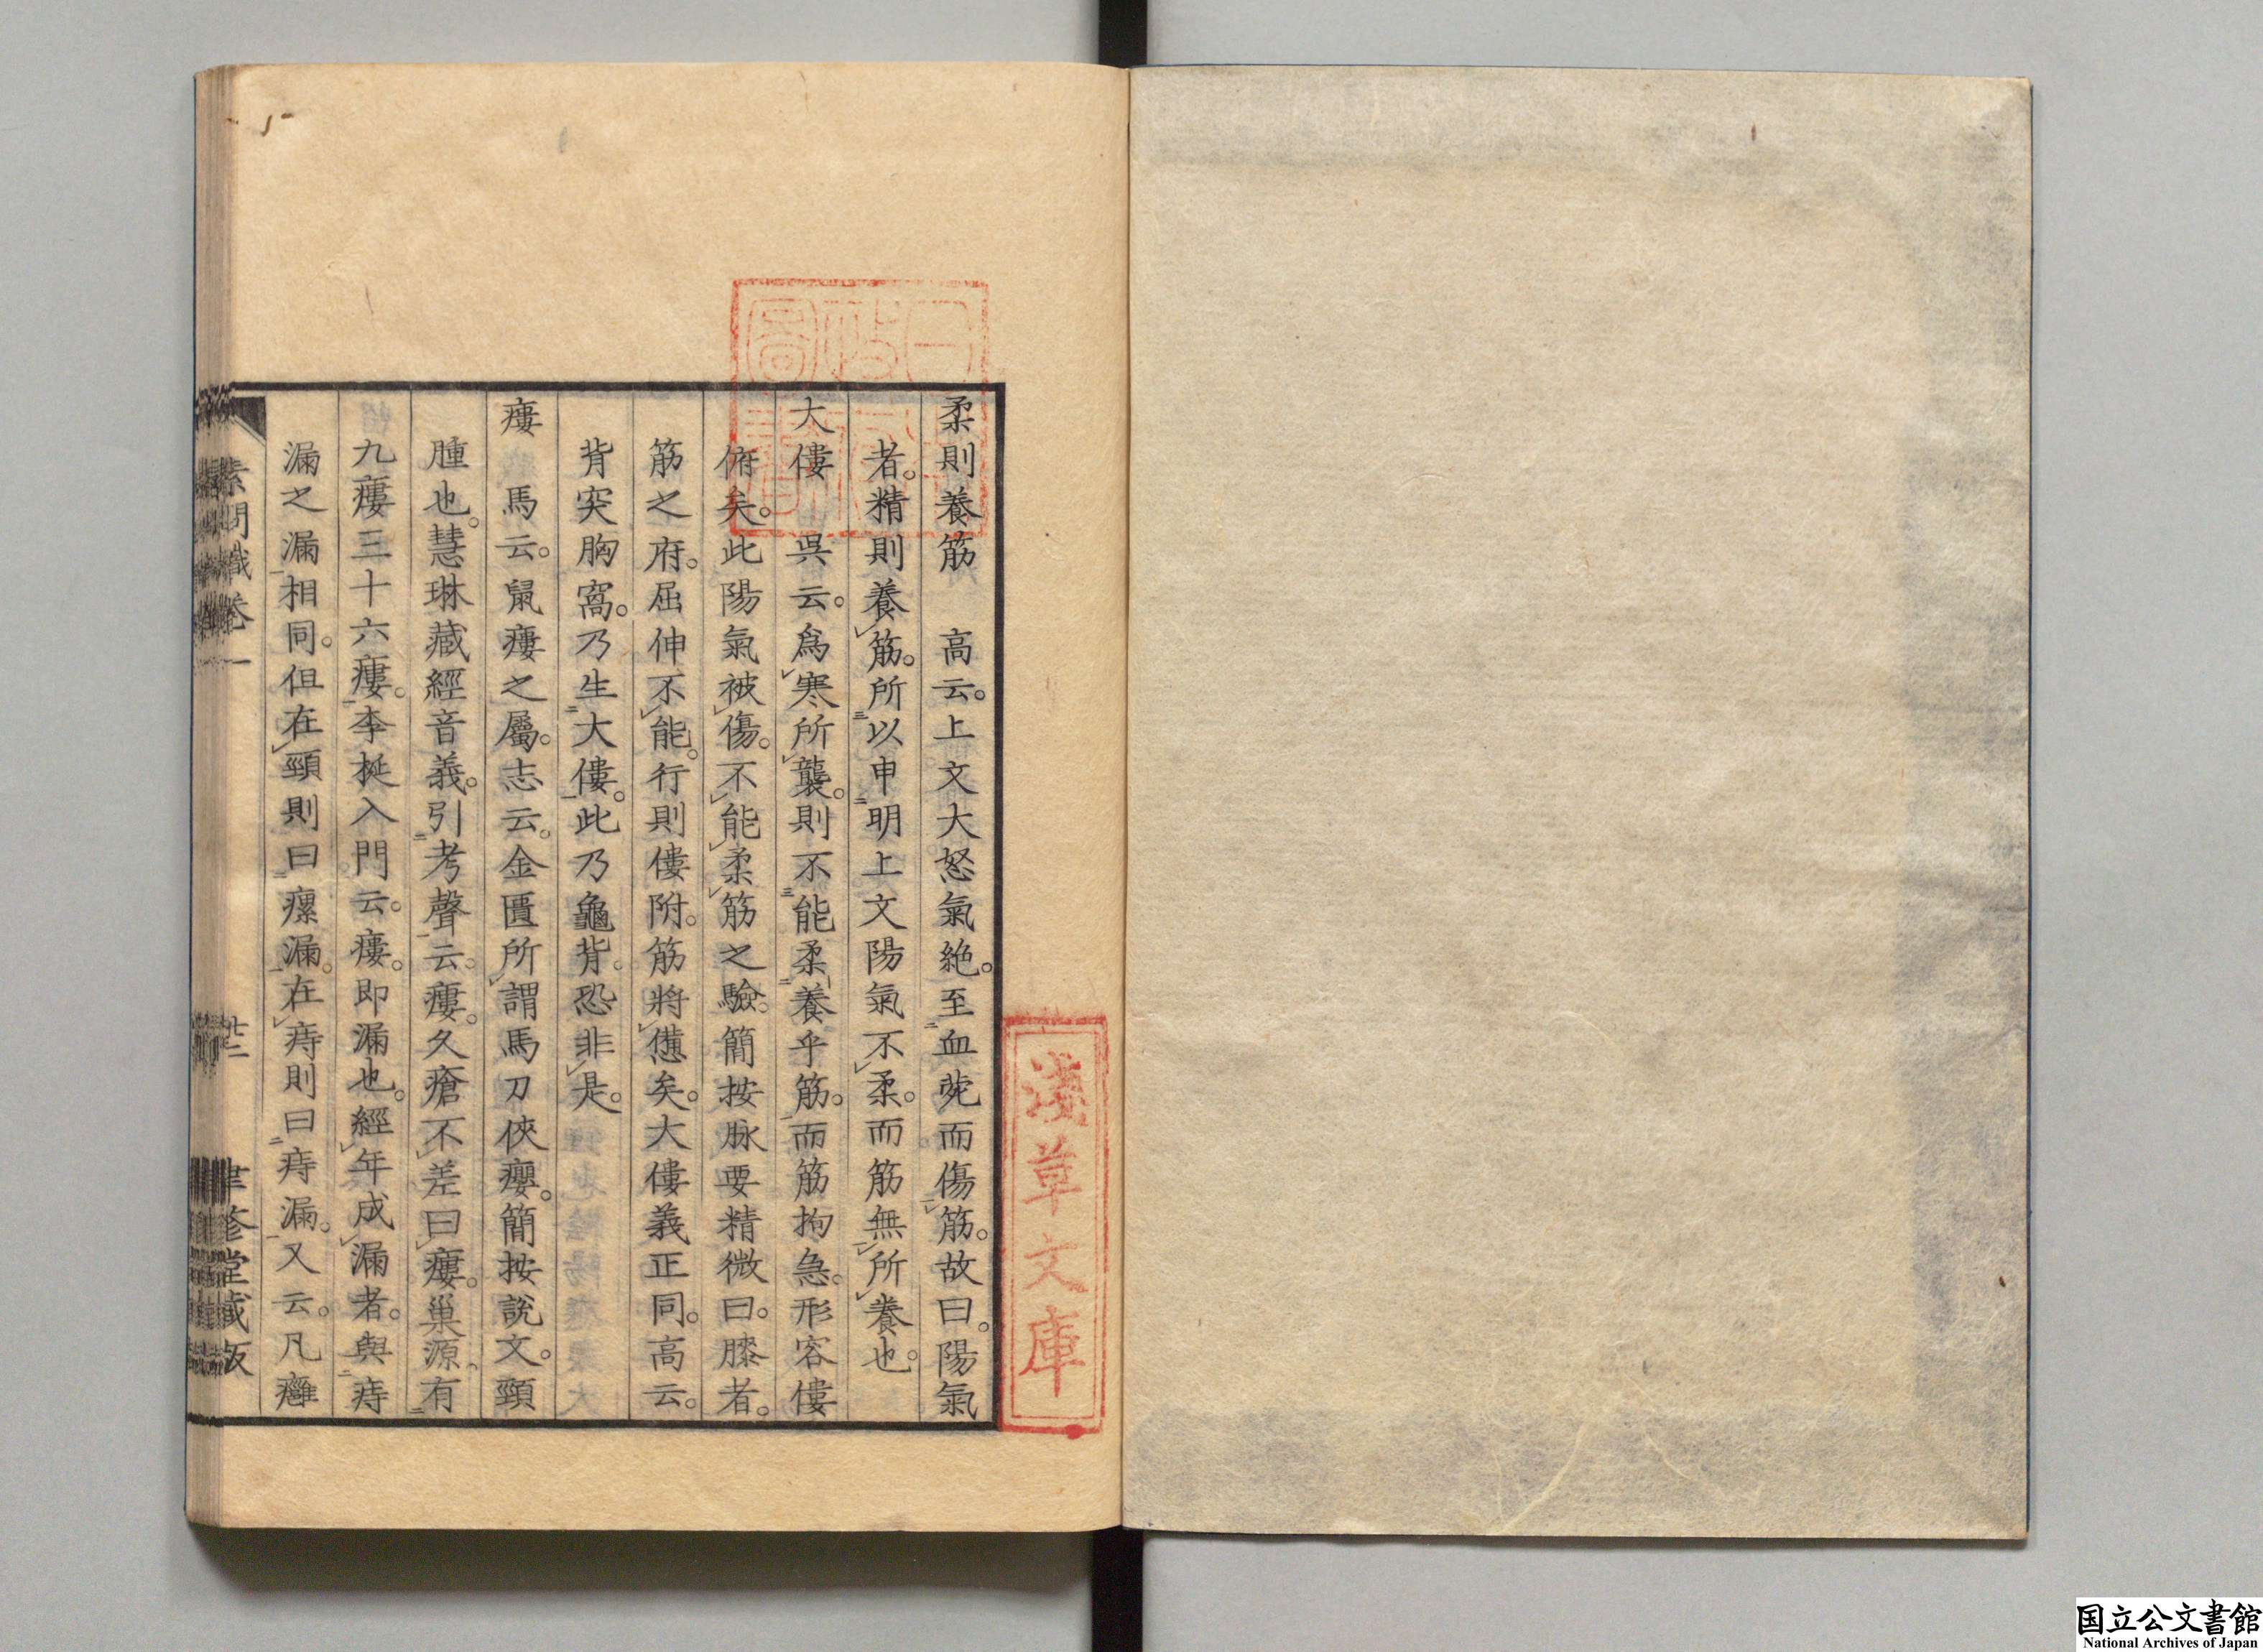 柔則養筋　高云。上文大怒氣絶。至血菀而傷筋。故曰。陽氣
者。精則養筋。所以申明上文陽氣不柔。而筋無所養也。
大僂　吳云。爲寒所襲。則不能柔養乎筋。而筋拘急。形容僂
俯矣。此陽氣被傷。不能柔筋之驗。簡按脉要精微曰。膝者。
筋之府。屈伸不能。行則僂附。筋將憊矣。大僂義正同。高云。
背突胸窩。乃生大僂。此乃龜背。恐非是。
瘻　馬云。鼠瘻之屬。志云。金匱所謂馬刀俠癭。簡按說文。頸
腫也。慧琳藏經音義。引考聲云。瘻。久瘡不差曰瘻。巢源有
九瘻三十六瘻。李梴入門云。瘻。即漏也。經年成漏者。與痔
漏之漏相同。但在頸則曰瘰漏。在痔則曰痔漏。又云。凡癰
素問識卷一
廿二
聿脩堂藏版
淺草文庫
国立公文書館
National Archives of Japan